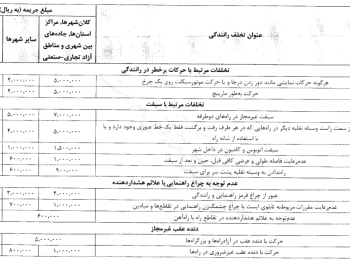 مبلغ جریمه (به ریال)
عنوان تخلف رانندگی
کلان‌شهرها، مراکز استان‌ها، جاده‌های بین شهری و مناطق آزاد تجاری-صنعتی
سایر شهرها
تخلفات مرتبط با حرکات پرخطر در رانندگی
هرگونه حرکات نمایشی مانند دور زدن درجا و یا حرکت موتورسیکلت روی یک چرخ ۵.۰۰۰.۰۰۰ ۴.۰۰۰.۰۰۰
حرکت به‌طور مارپیچ ۵.۰۰۰.۰۰۰ ۴.۰۰۰.۰۰۰
تخلفات مرتبط با سبقت
سبقت غیرمجاز در راه‌های دوطرفه ۷.۰۰۰.۰۰۰ ۵.۰۰۰.۰۰۰
از سمت راست وسیله نقلیه دیگر در راه‌هایی که در هر طرف رفت و برگشت فقط یک خط عبوری وجود دارد و یا ۵.۰۰۰.۰۰۰ ۴.۰۰۰.۰۰۰
با استفاده از شانه راه
سبقت اتوبوس و کامیون در داخل شهر ۱.۵۰۰.۰۰۰ ۱.۰۰۰.۰۰۰
عدم‌رعایت فاصله طولی و عرضی کافی قبل، حین و بعد از سبقت ۱.۰۰۰.۰۰۰ ۶۰۰.۰۰۰
راه‌ندادن به وسیله نقلیه پشت سر برای سبقت ۹۰۰.۰۰۰ ۶۰۰.۰۰۰
عدم توجه به چراغ راهنمایی یا علائم هشداردهنده
عبور از چراغ قرمز راهنمایی و رانندگی ۴.۰۰۰.۰۰۰ ۳.۰۰۰.۰۰۰
عدم‌رعایت مقررات مربوط‌به تابلوی ایست یا چراغ چشمک‌زن راهنمایی در تقاطع‌ها و میادین ۱.۰۰۰.۰۰۰ ۷۰۰.۰۰۰
عدم‌توجه به علائم هشداردهنده در تقاطع راه با راه‌آهن ۶۰۰.۰۰۰
دنده عقب غیرمجاز
حرکت با دنده عقب در آزادراه‌ها و بزرگراه‌ها ۵.۰۰۰.۰۰۰
حرکت با دنده عقب غیرضروری در راه‌ها ۱.۰۰۰.۰۰۰ ۸۰۰.۰۰۰